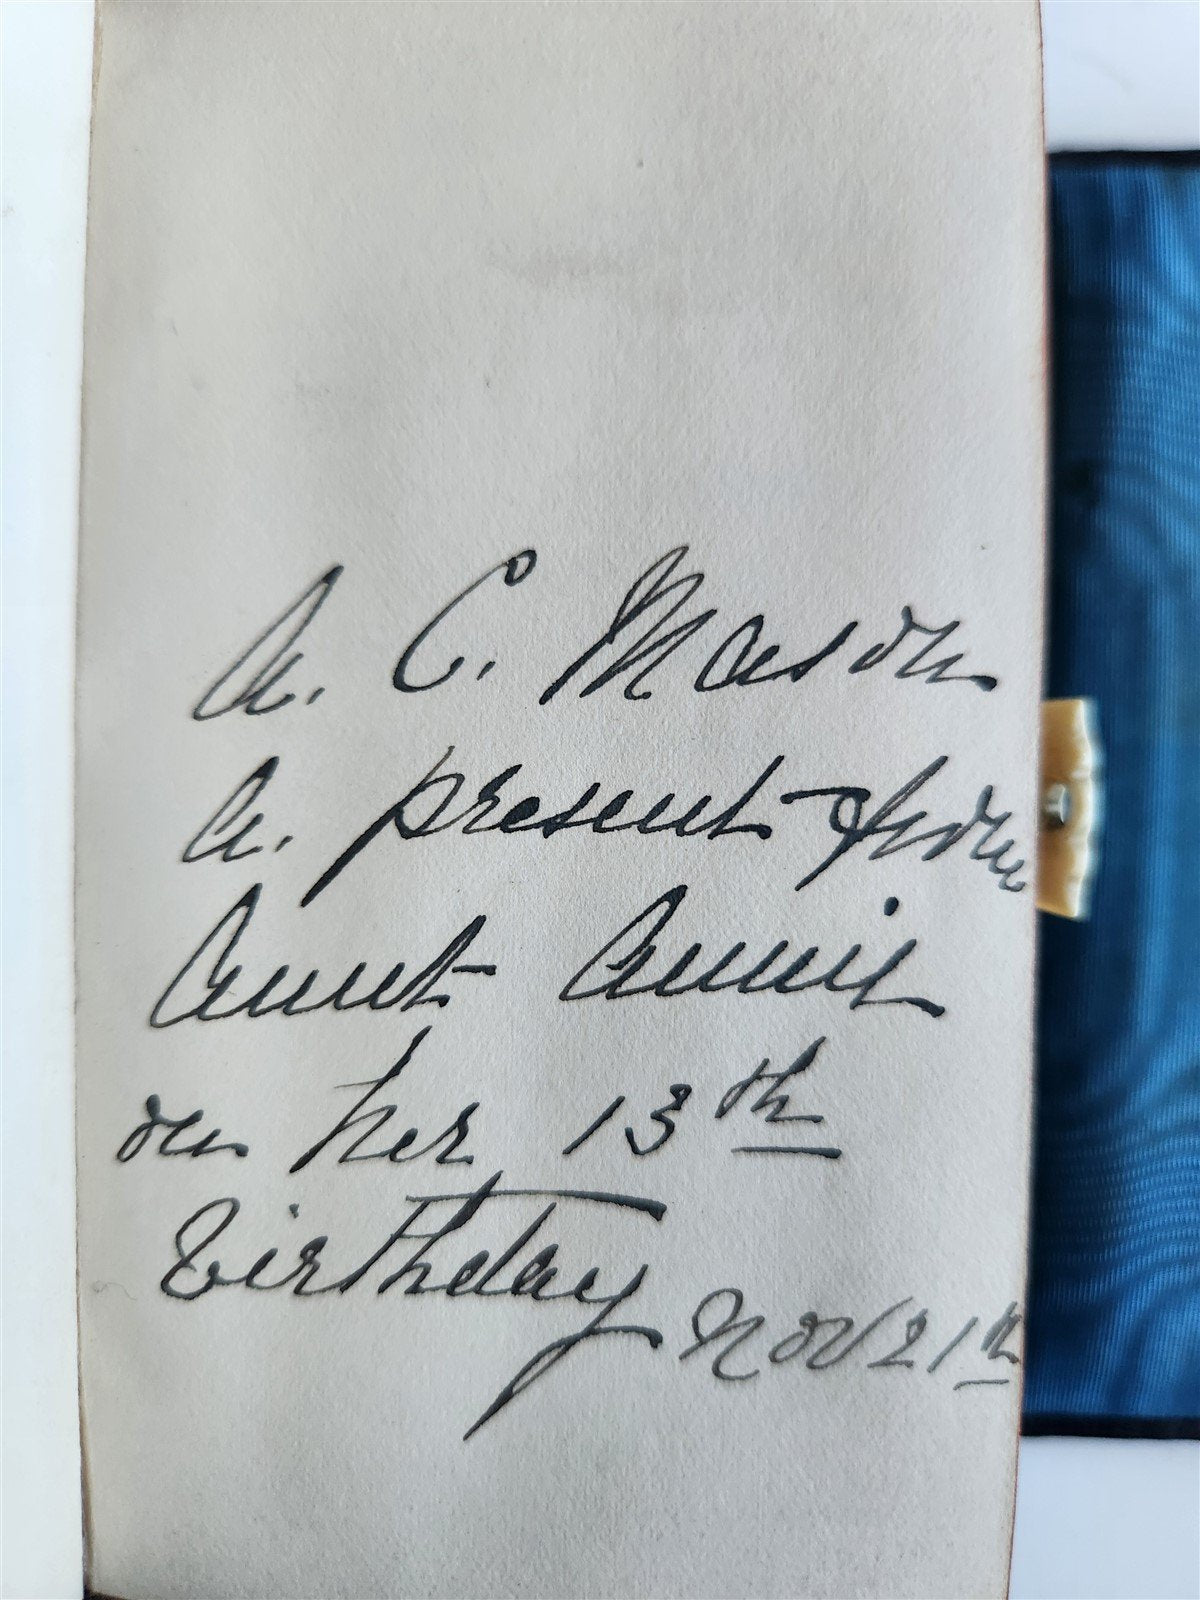 A. C. Mason
A. present from
Aunt Annie
on her 13th
Birthday
Nov 21th